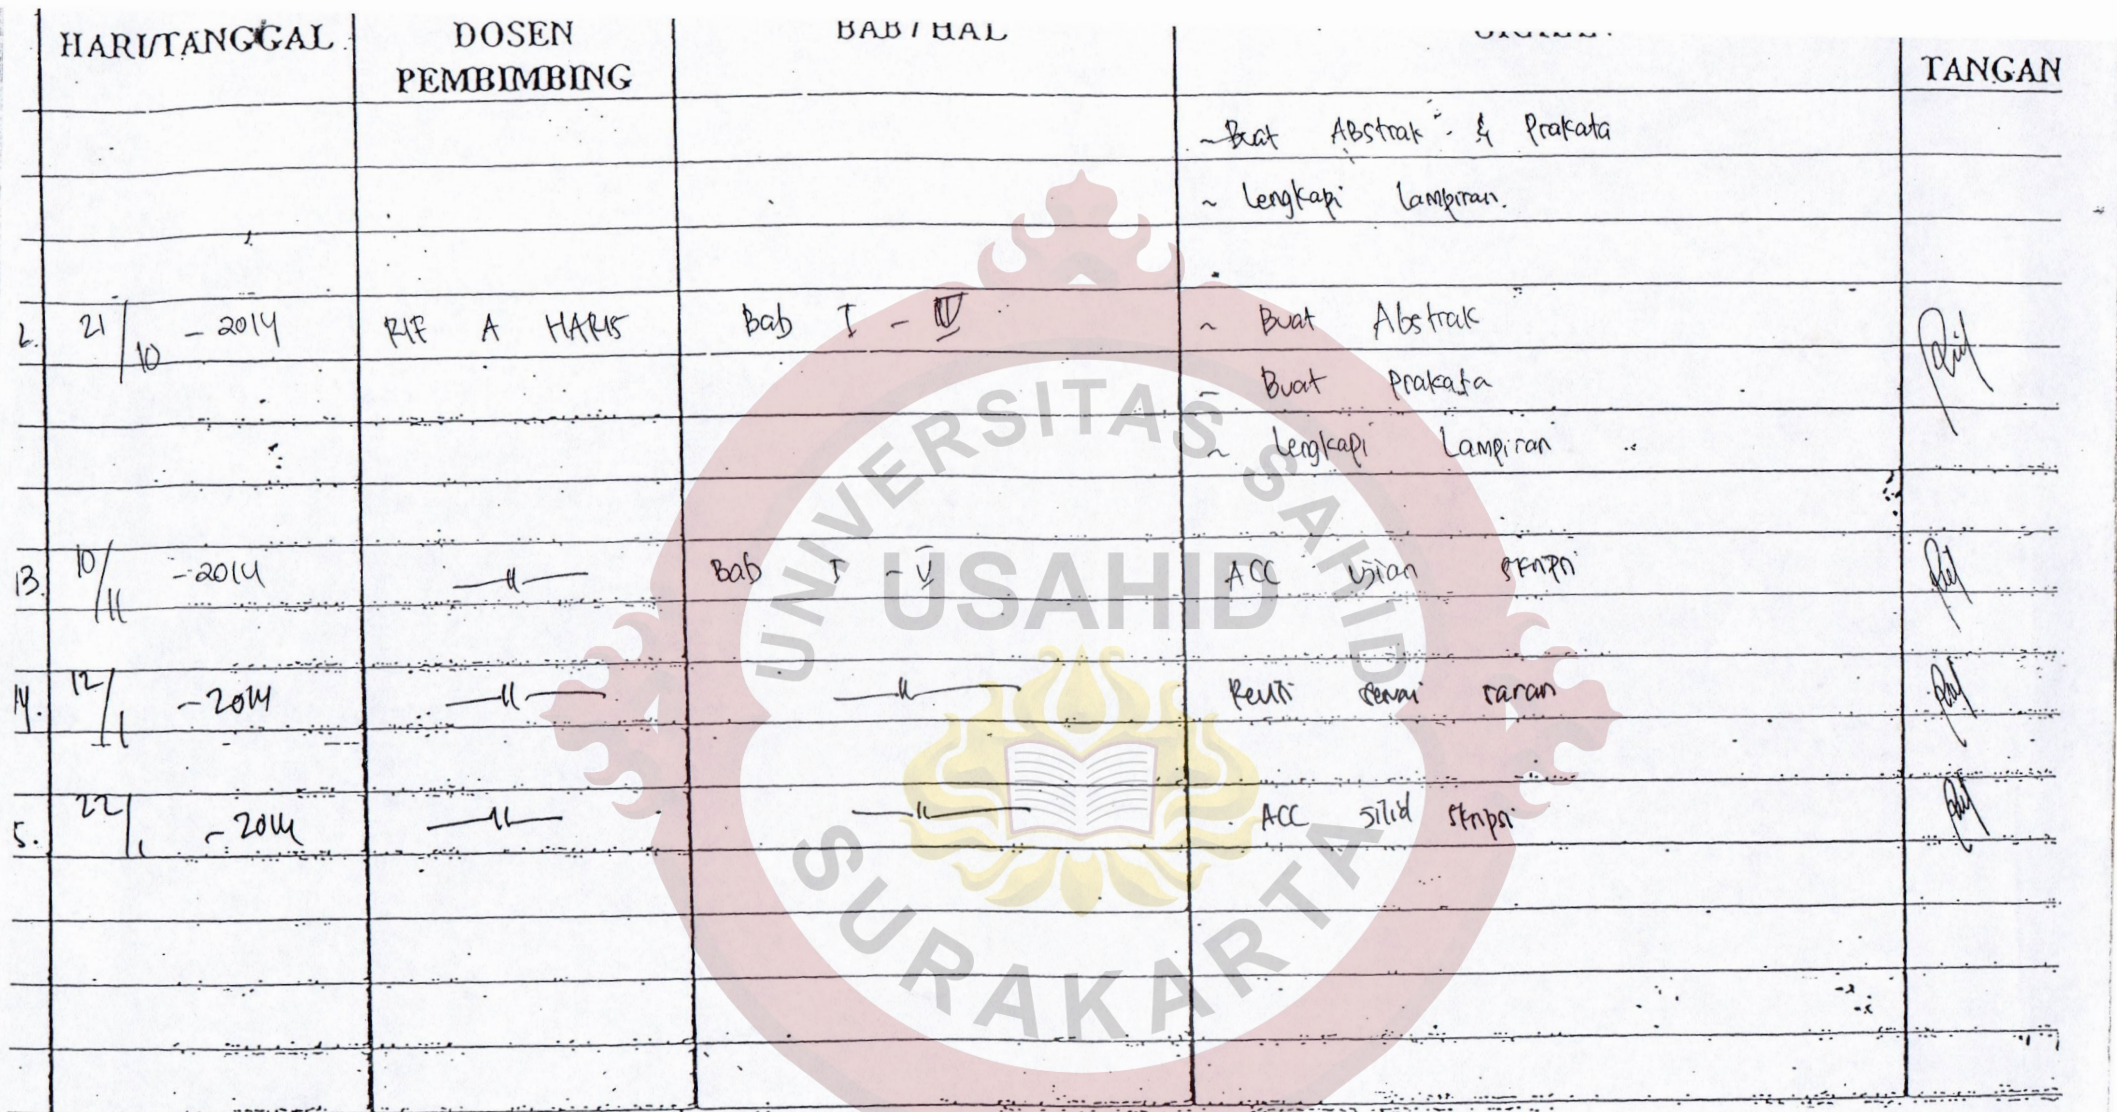 HARI/TANGGAL DOSEN PEMBIMBING BAB / HAL TANGAN
~ Buat Abstrak & Prakata
~ Lengkapi Lampiran.
2. 21/10 - 2014 RIF A HARIS Bab I - IV ~ Buat Abstrak
- Buat Prakata
~ Lengkapi Lampiran
13. 10/11 - 2014 —〃— Bab I - V ACC Ujian Skripsi
14. 12/1 - 2014 —〃— —〃— saran
5. 22/1 - 2014 —〃— —〃— ACC Jilid Skripsi
UNIVERSITAS SAHID
USAHID
SURAKARTA